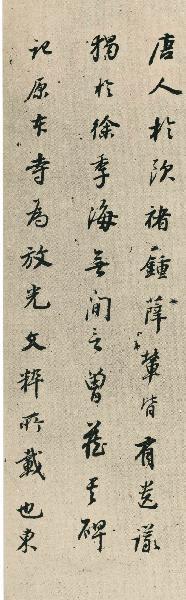 唐人於欧褚鍾薛輩皆有遗議
獨於徐季海無间言曾其碑
记原本寺為放光文粹所載也東